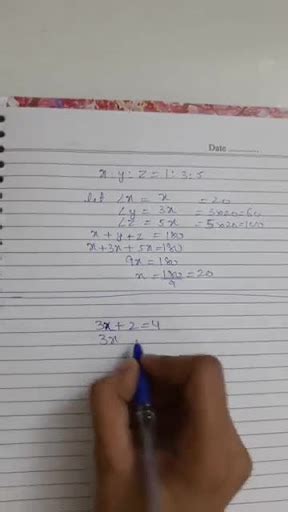 Date ..........
x : y : z = 1 : 3 : 5
let ∠x = x = 20
∠y = 3x = 3x20=60
∠z = 5x = 5x20=100
x + y + z = 180
x + 3x + 5x = 180
9x = 180
x = 180/9 = 20
3x + 2 = 4
3x